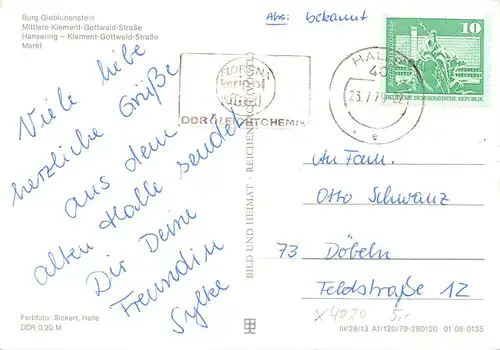 Burg Giebichenstein
Mittlere Klement-Gottwald-Straße
Hansering – Klement-Gottwald-Straße
Markt
Viele liebe
herzliche Grüße
aus dem
alten Halle sendet
Dir Deine
Freundin
Sylke
Farbfoto: Sickert, Halle
DDR 0,20 M
BILD UND HEIMAT · REICHENBACH
Abs: bekannt
10
DEUTSCHE DEMOKRATISCHE REPUBLIK
HALLE
40
23.7.79
e
An Fam.
Otto Schwanz
73 Döbeln
Feldstraße 12
X 4020 5,-
III/26/13 A1/120/79-280120 01 06 0135